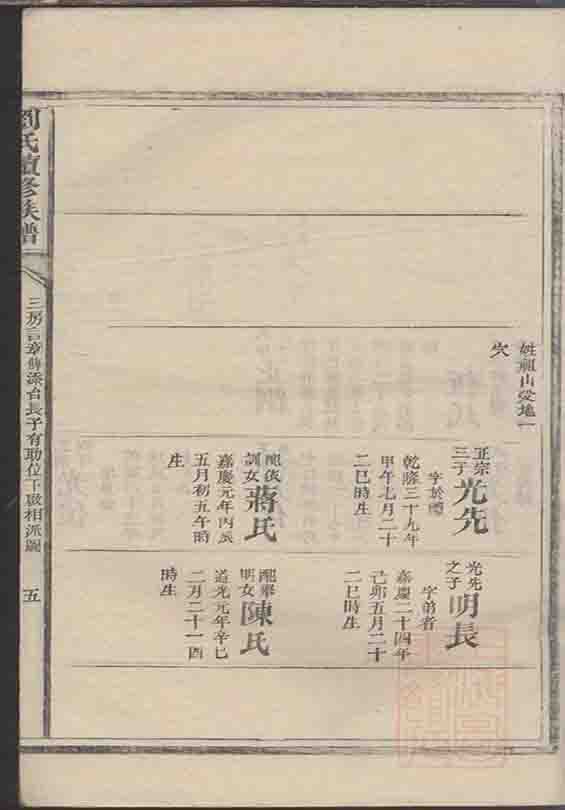 姓祖山安地一
穴
正宗
三子
光先
字於標
乾隆三十九年
甲午七月二十
二巳時生
配俊
訓女
蔣氏
嘉慶元年丙辰
五月初五午時
生
光先
之子
明長
字弟者
嘉慶二十四年
己卯五月二十
二巳時生
配舉
明女
陳氏
道光元年辛巳
二月二十一酉
時生
劉氏續修族譜
三房言章
派台長子有助位下
相派圖
五